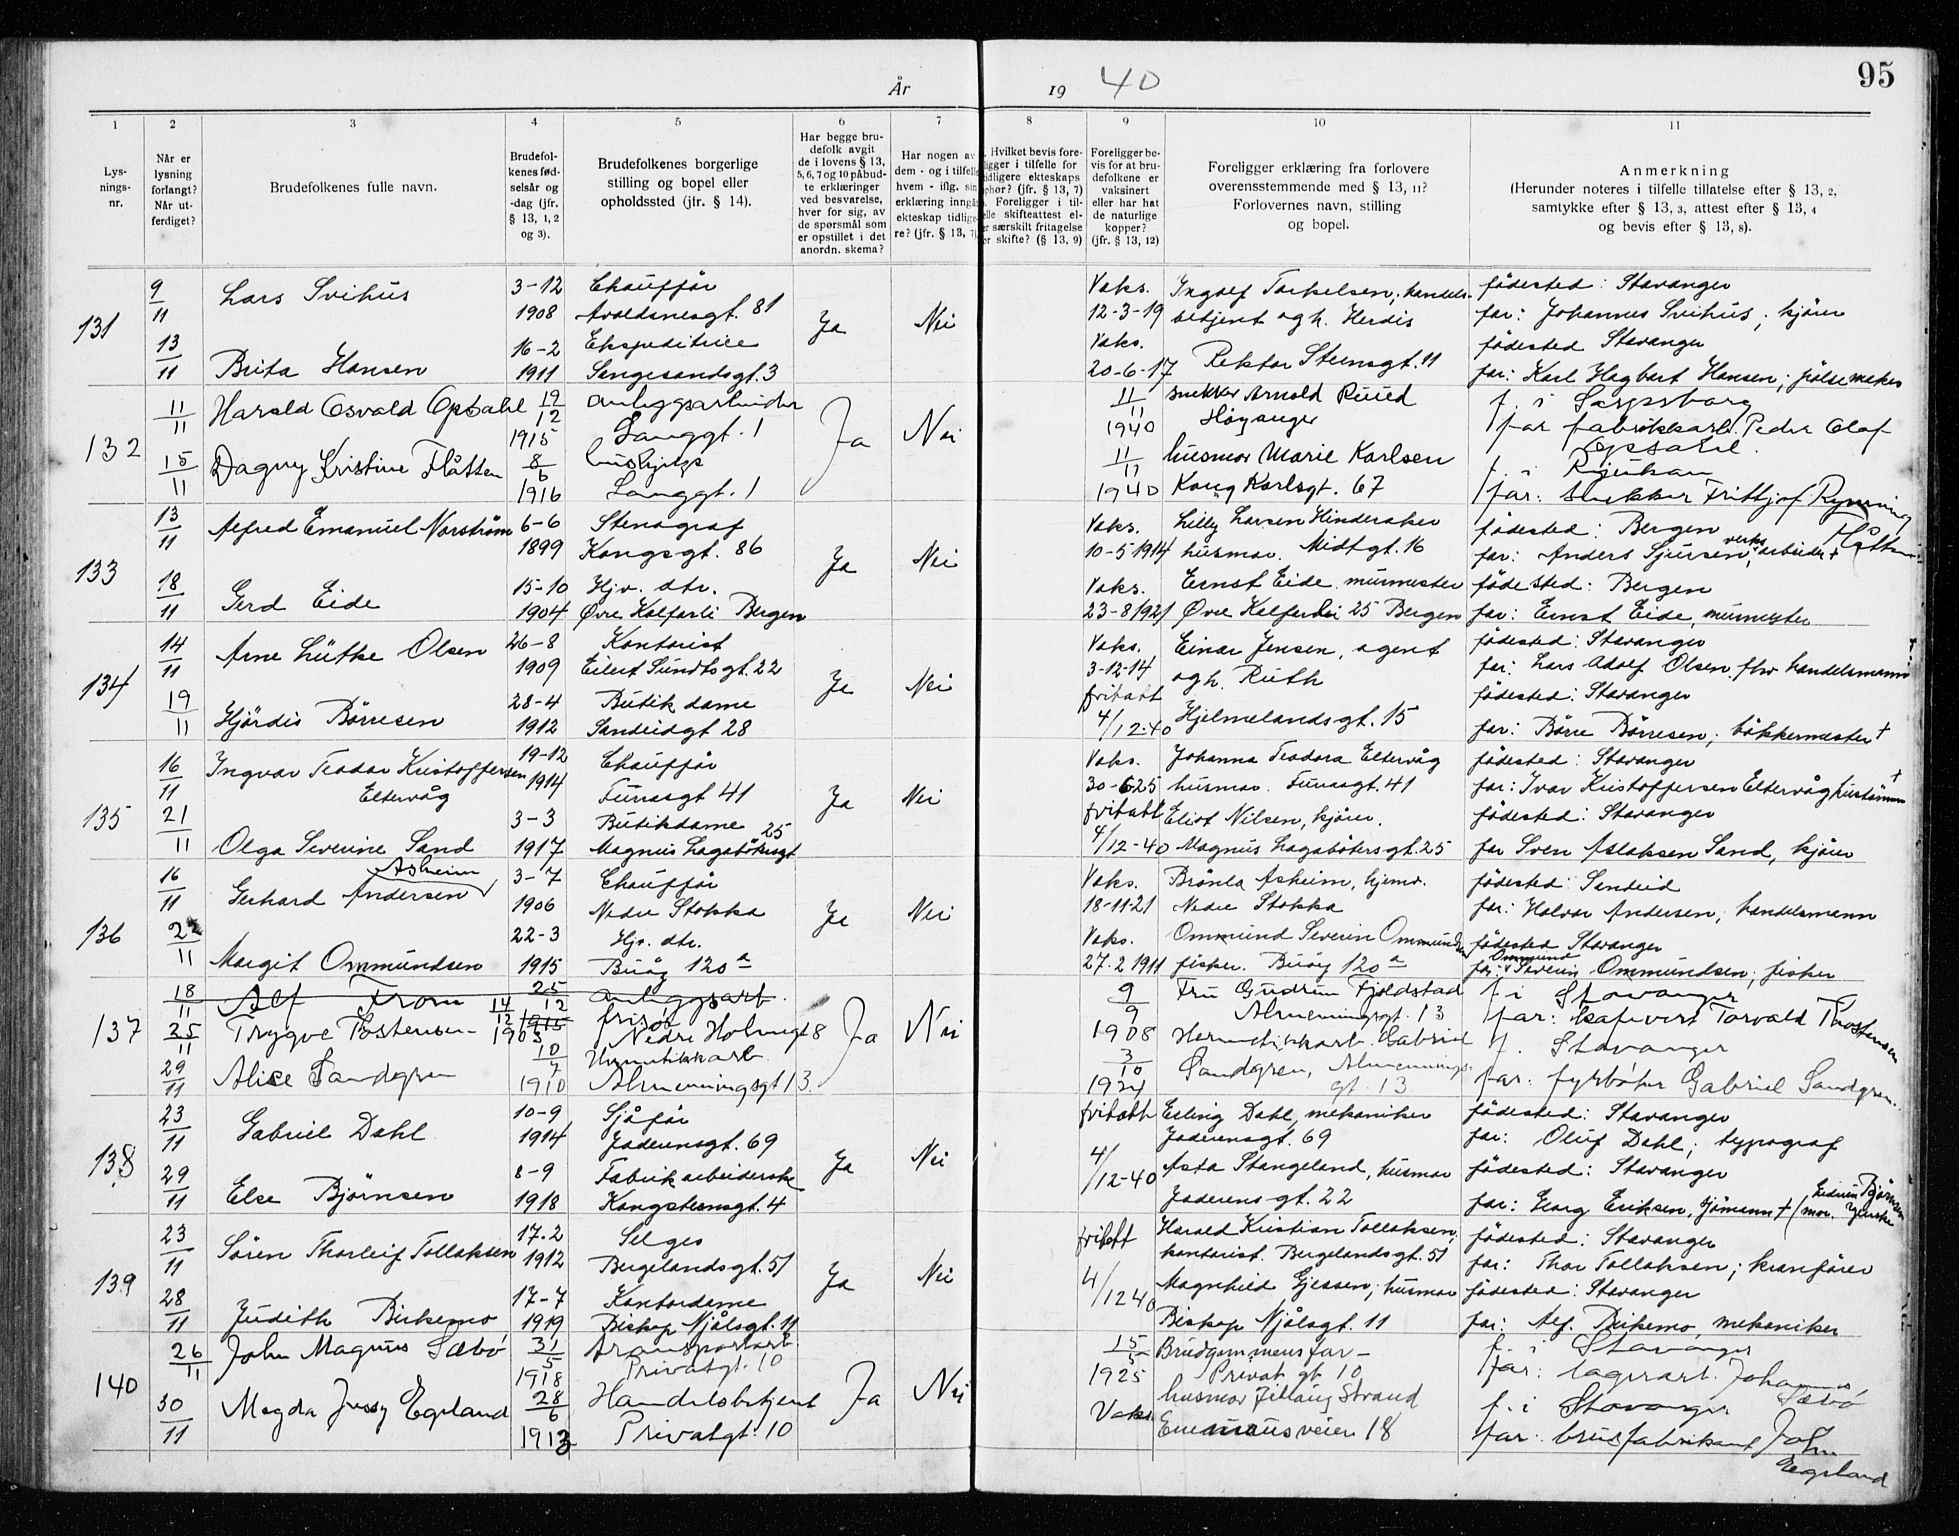 År 19 40
95
1 2 3 4 5 6 7 8 9 10 11
Lys-
nings-
nr.
Når er
lysning
forlangt?
Når ut-
ferdiget?
Brudefolkenes fulle navn.
Brudefol-
kenes fød-
selsår og
-dag (jfr.
§ 13, 1, 2
og 3).
Brudefolkenes borgerlige
stilling og bopel eller
opholdssted (jfr. § 14).
Har begge bru-
defolk avgit
de i lovens § 13,
5, 6, 7 og 10 påbud-
te erklæringer
ved besvarelse,
hver for sig, av
de spørsmål som
er opstillet i det
anordn. skema?
Har nogen av
dem - og i tilfelle
hvem - iflg. sin
erklæring inngå
ekteskap tidlige-
re? (jfr. § 13, 7)
Hvilket bevis fore-
ligger i tilfelle for
tidligere ekteskaps
ophør? (jfr. § 13, 7)
Foreligger i til-
felle skifteattest el-
er særskilt fritagelse
or skifte? (§ 13, 9)
Foreligger be-
vis for at bru-
defolkene er
vaksinert
eller har hat
de naturlige
kopper?
(jfr. § 13, 12)
Foreligger erklæring fra forlovere
overensstemmende med § 13, 11?
Forlovernes navn, stilling
og bopel.
Anmerkning
(Herunder noteres i tilfelle tillatelse efter § 13, 2,
samtykke efter § 13, 3, attest efter § 13, 4
og bevis efter § 13, 8).
131 9/11 Lars Svihus 3-12 1908 Chauffør Avaldsnesgt. 81 Ja Nei Vaks. 12-3-19 Ingolf Torkelsen, handels-
betjent og h. Herdis fødested: Stavanger
far: Johannes Svihus, kjører
13/11 Brita Hansen 16-2 1911 Ekspeditrice Sangesandsgt. 3 Vaks. 20-6-17 Rektor Steensgt. 11 fødested Stavanger
far: Karl Hagbart Hansen, pølsemaker
132 11/11 Harald Osvald Opsahl 19/12 1915 anleggsarbeider Langgt. 1 Ja Nei 11/11 1940 snekker Arnold Ruud
Høyanger f. i Sarpsborg
far fabrikkarb. Peder Olaf
Opsahl.
15/11 Dagny Kristine Flåtten 8/6 1916 hushjelp Langgt. 1 11/11 1940 husmor Marie Karlsen
Kong Karlsgt. 67 f. i Rjukan
far: snekker Fritjof
133 13/11 Alfred Emanuel Norstrøm 6-6 1899 Stenograf Kongsgt. 86 Ja Nei Vaks. 10-5-1914 Lilly Larsen Hinderaker
husmor. Midtgt. 16 fødested: Bergen
far: Anders Sjursen, verks arbeider +
18/11 Gerd Eide 15-10 1904 Hjv. dtr. Øvre Kalfarli Bergen Vaks. 23-8-1921 Ernst Eide, murmester
Øvre Kalfarlei 25 Bergen fødested: Bergen
far: Ernst Eide, murmester
134 14/11 Arne Lütke Olsen 26-8 1909 Kontorist Eilert Sundtsgt. 22 Ja Nei Vaks. 3-12-14 Einar Jensen, agent
og h. Ruth fødested: Stavanger
far: Lars Adolf Olsen, fhv handelsmann
19/11 Hjördis Börresen 28-4 1912 Butikdame Sandeidgt 28 fritatt 4/12-40 Hjelmelandsgt. 15 fødested: Stavanger
far: Börre Börresen, bökkermester +
135 16/11 Ingvar Teodor Kristoffersen
Eltervåg 19-12 1914 Chauffør Furasgt 41 Ja Nei Vaks. 30-6-25 Johanna Teodora Eltervåg
husmor. Furasgt. 41 fødested: Stavanger
far: Ivar Kristoffersen Eltervåg +
21/11 Olga Severine Sand 3-3 1917 Butikdame Magnus Lagabötersgt 25 fritatt 4/12-40 Eliot Nilsen, kjörer.
Magnus Lagabötersgt. 25 fødested: Stavanger
far Sven Aslaksen Sand, kjörer
136 16/11 Gerhard Andersen Asheim 3-7 1906 Chauffør Nedre Stokka Ja Nei Vaks. 18-11-21 Brönla Asheim, hjemv.
Nedre Stokka fødested: Sandeid
far: Halvor Andersen, handelsmann
22/11 Margit Ommundsen 22-3 1915 Hjv. dtr. Buöy 120a Vaks. 27-2 1911 Ommund Severin Ommundsen
fisker. Buöy 120a fødested Stavanger
far: Ommund Severin Ommundsen, fisker
137 18/11 Alf From 25/12 1915 anleggsarb.
25/11 Trygve Tostensen 14/12 1903 frisør Nedre Holmegt 8 Ja Nei 9/9 1908 Fru Gudrun Fjeldstad
Almenningsgt. 13 f. i Stavanger
far: kafevert Torvald Thostensen
29/11 Alice Sandgren 10/7 1910 Hermetikkarb. Almenningsgt 13. 3/10 1924 Hermetikkarb. Gabriel
Sandgren, Almennings-
gt. 13 f. Stavanger
far: fyrbøter Gabriel Sandgren.
138 23/11 Gabriel Dahl 10-9 1914 Sjåför Jaderensgt. 69 Ja Nei fritatt Erling Dahl, mekaniker
Jaderensgt. 69 fødested: Stavanger
far: Oluf Dahl, typograf
29/11 Else Bjørnsen 8-9 1918 Fabrikarbeiderske Kongsteensgt. 4 4/12-40 Asta Stangeland, husmor
Jaderensgt. 22 fødested: Stavanger
far: Georg Eriksen, sjömann + (mor.
139 23/11 Sören Thorleif Tollaksen 17.2 1912 Selger Bergelandsgt. 51 Ja Nei fritatt Harald Kristian Tollaksen,
kontorist. Bergelandsgt. 51 fødested: Stavanger
far: Thor Tollaksen, kranförer
28/11 Judith Birkemo 17-7 1919 Kontordame Biskop Njålsgt. 11 4/12 40 Magnhild Gjessen, husmor
Biskop Njålsgt. 11 fødested: Stavanger
far: Alf. Birkemo, mekaniker
140 26/11 John Magnus Sæbø 31/5 1918 Transportarb. Privatgt. 10 Ja Nei 15/5 1925 Brudgommens far -
Privat gt 10 f. i Stavanger
far: lagerarb. Johannes
Sæbø
30/11 Magda Jussy Egeland 28/6 1913 Handelsbetjent Privatgt. 10 Vaks. husmor Strand
Emmausveien 18 f. i Stavanger
far: brusfabrikant John
Egeland